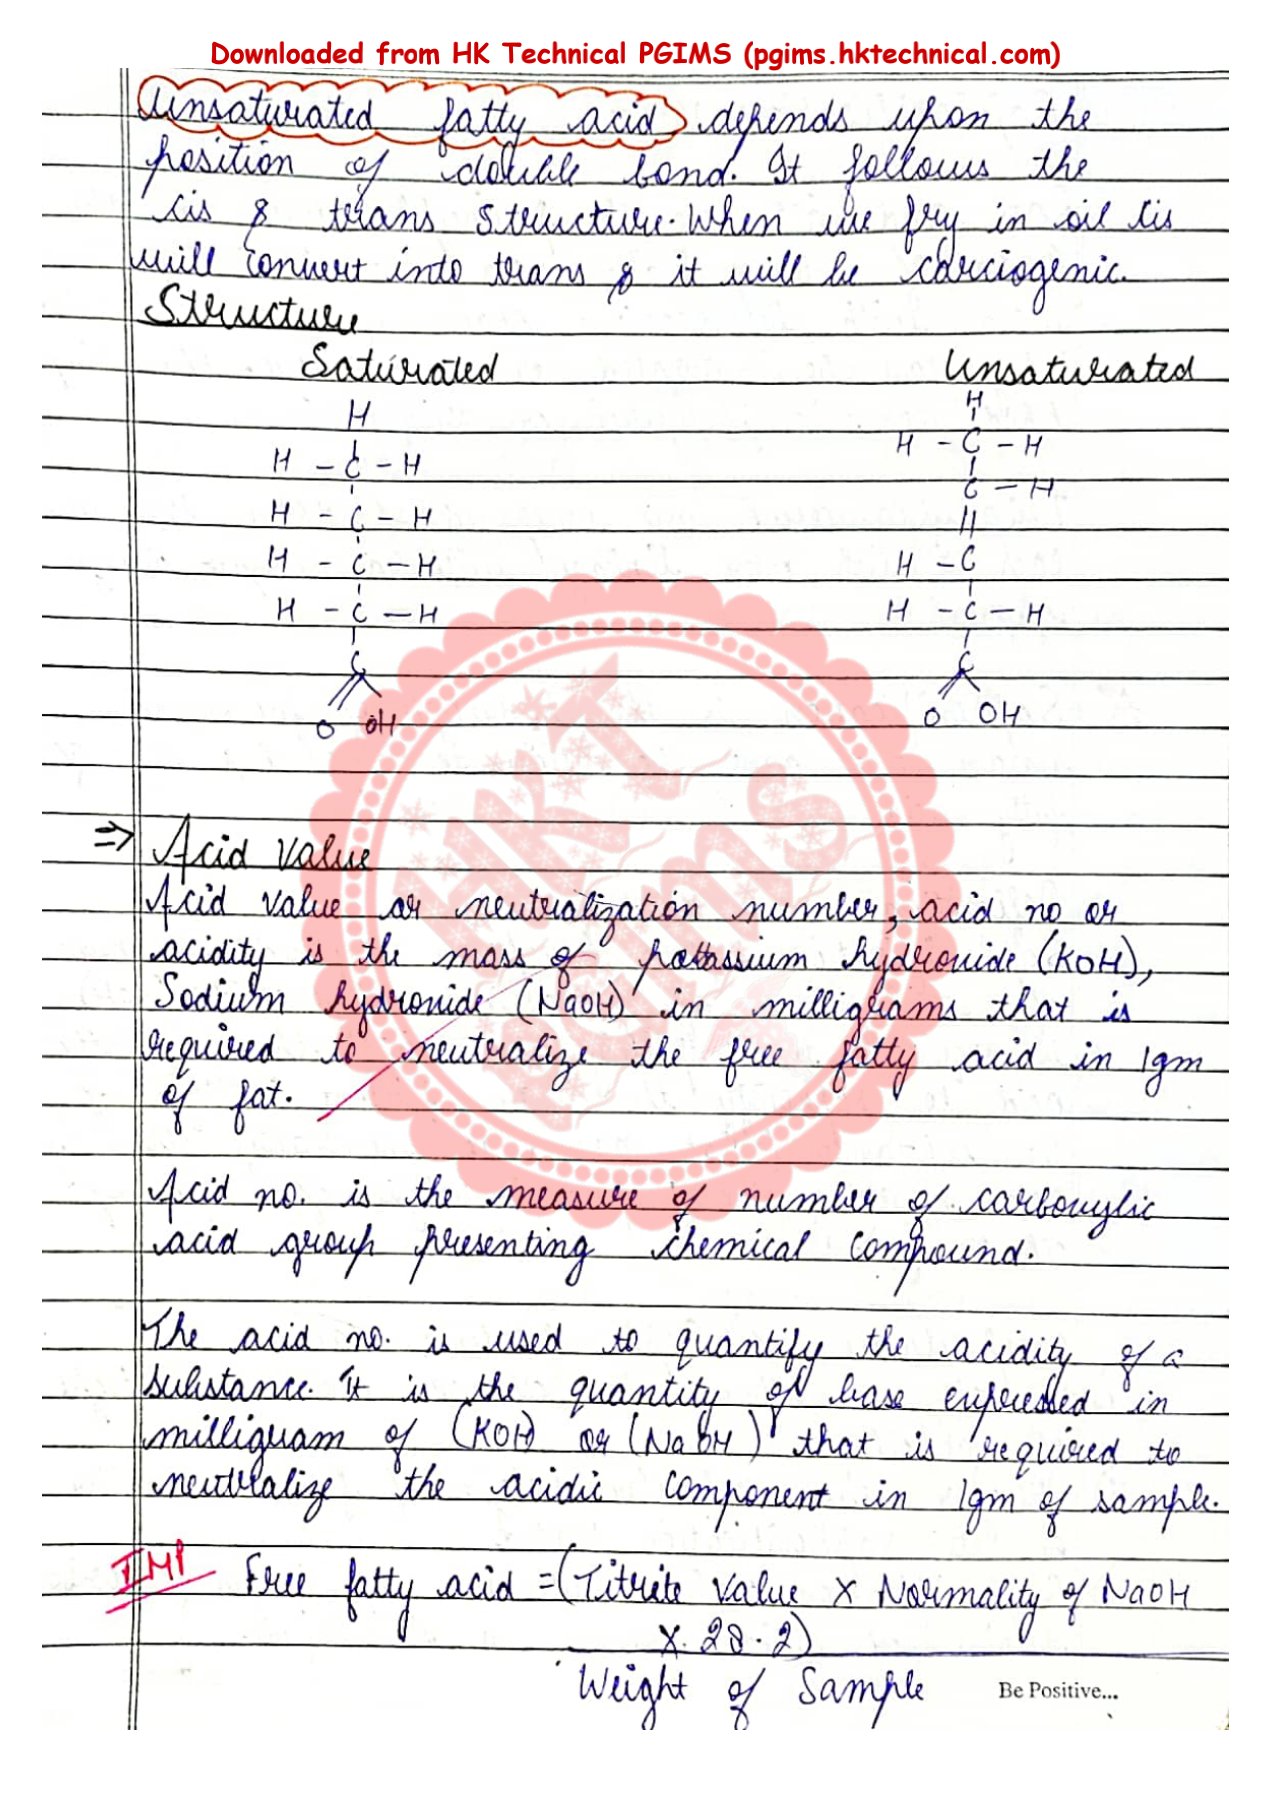 Downloaded from HK Technical PGIMS (pgims.hktechnical.com)
Unsaturated fatty acid depends upon the
position of double bond. It follows the
cis & trans structure. When we fry in oil cis
will convert into trans & it will be carciogenic.
Structure
Saturated Unsaturated
H
H
H - C - H
H - C - H
C - H
H - C - H
H - C - H
H - C
H - C - H
H - C - H
C
C
O OH
O OH
HKT
PGIMS
⇒ Acid Value
Acid value or neutralization number, acid no or
acidity is the mass of potassium hydroxide (KOH),
Sodium hydroxide (NaOH) in milligrams that is
required to neutralize the free fatty acid in 1gm
of fat.
Acid no. is the measure of number of carboxylic
acid group presenting chemical compound.
The acid no. is used to quantify the acidity of a
substance. It is the quantity of base expressed in
milligram of (KOH) or (NaOH) that is required to
neutralize the acidic component in 1gm of sample.
IMP Free fatty acid = (Titrite value X Normality of NaOH
X. 28.2)
Weight of Sample
Be Positive...